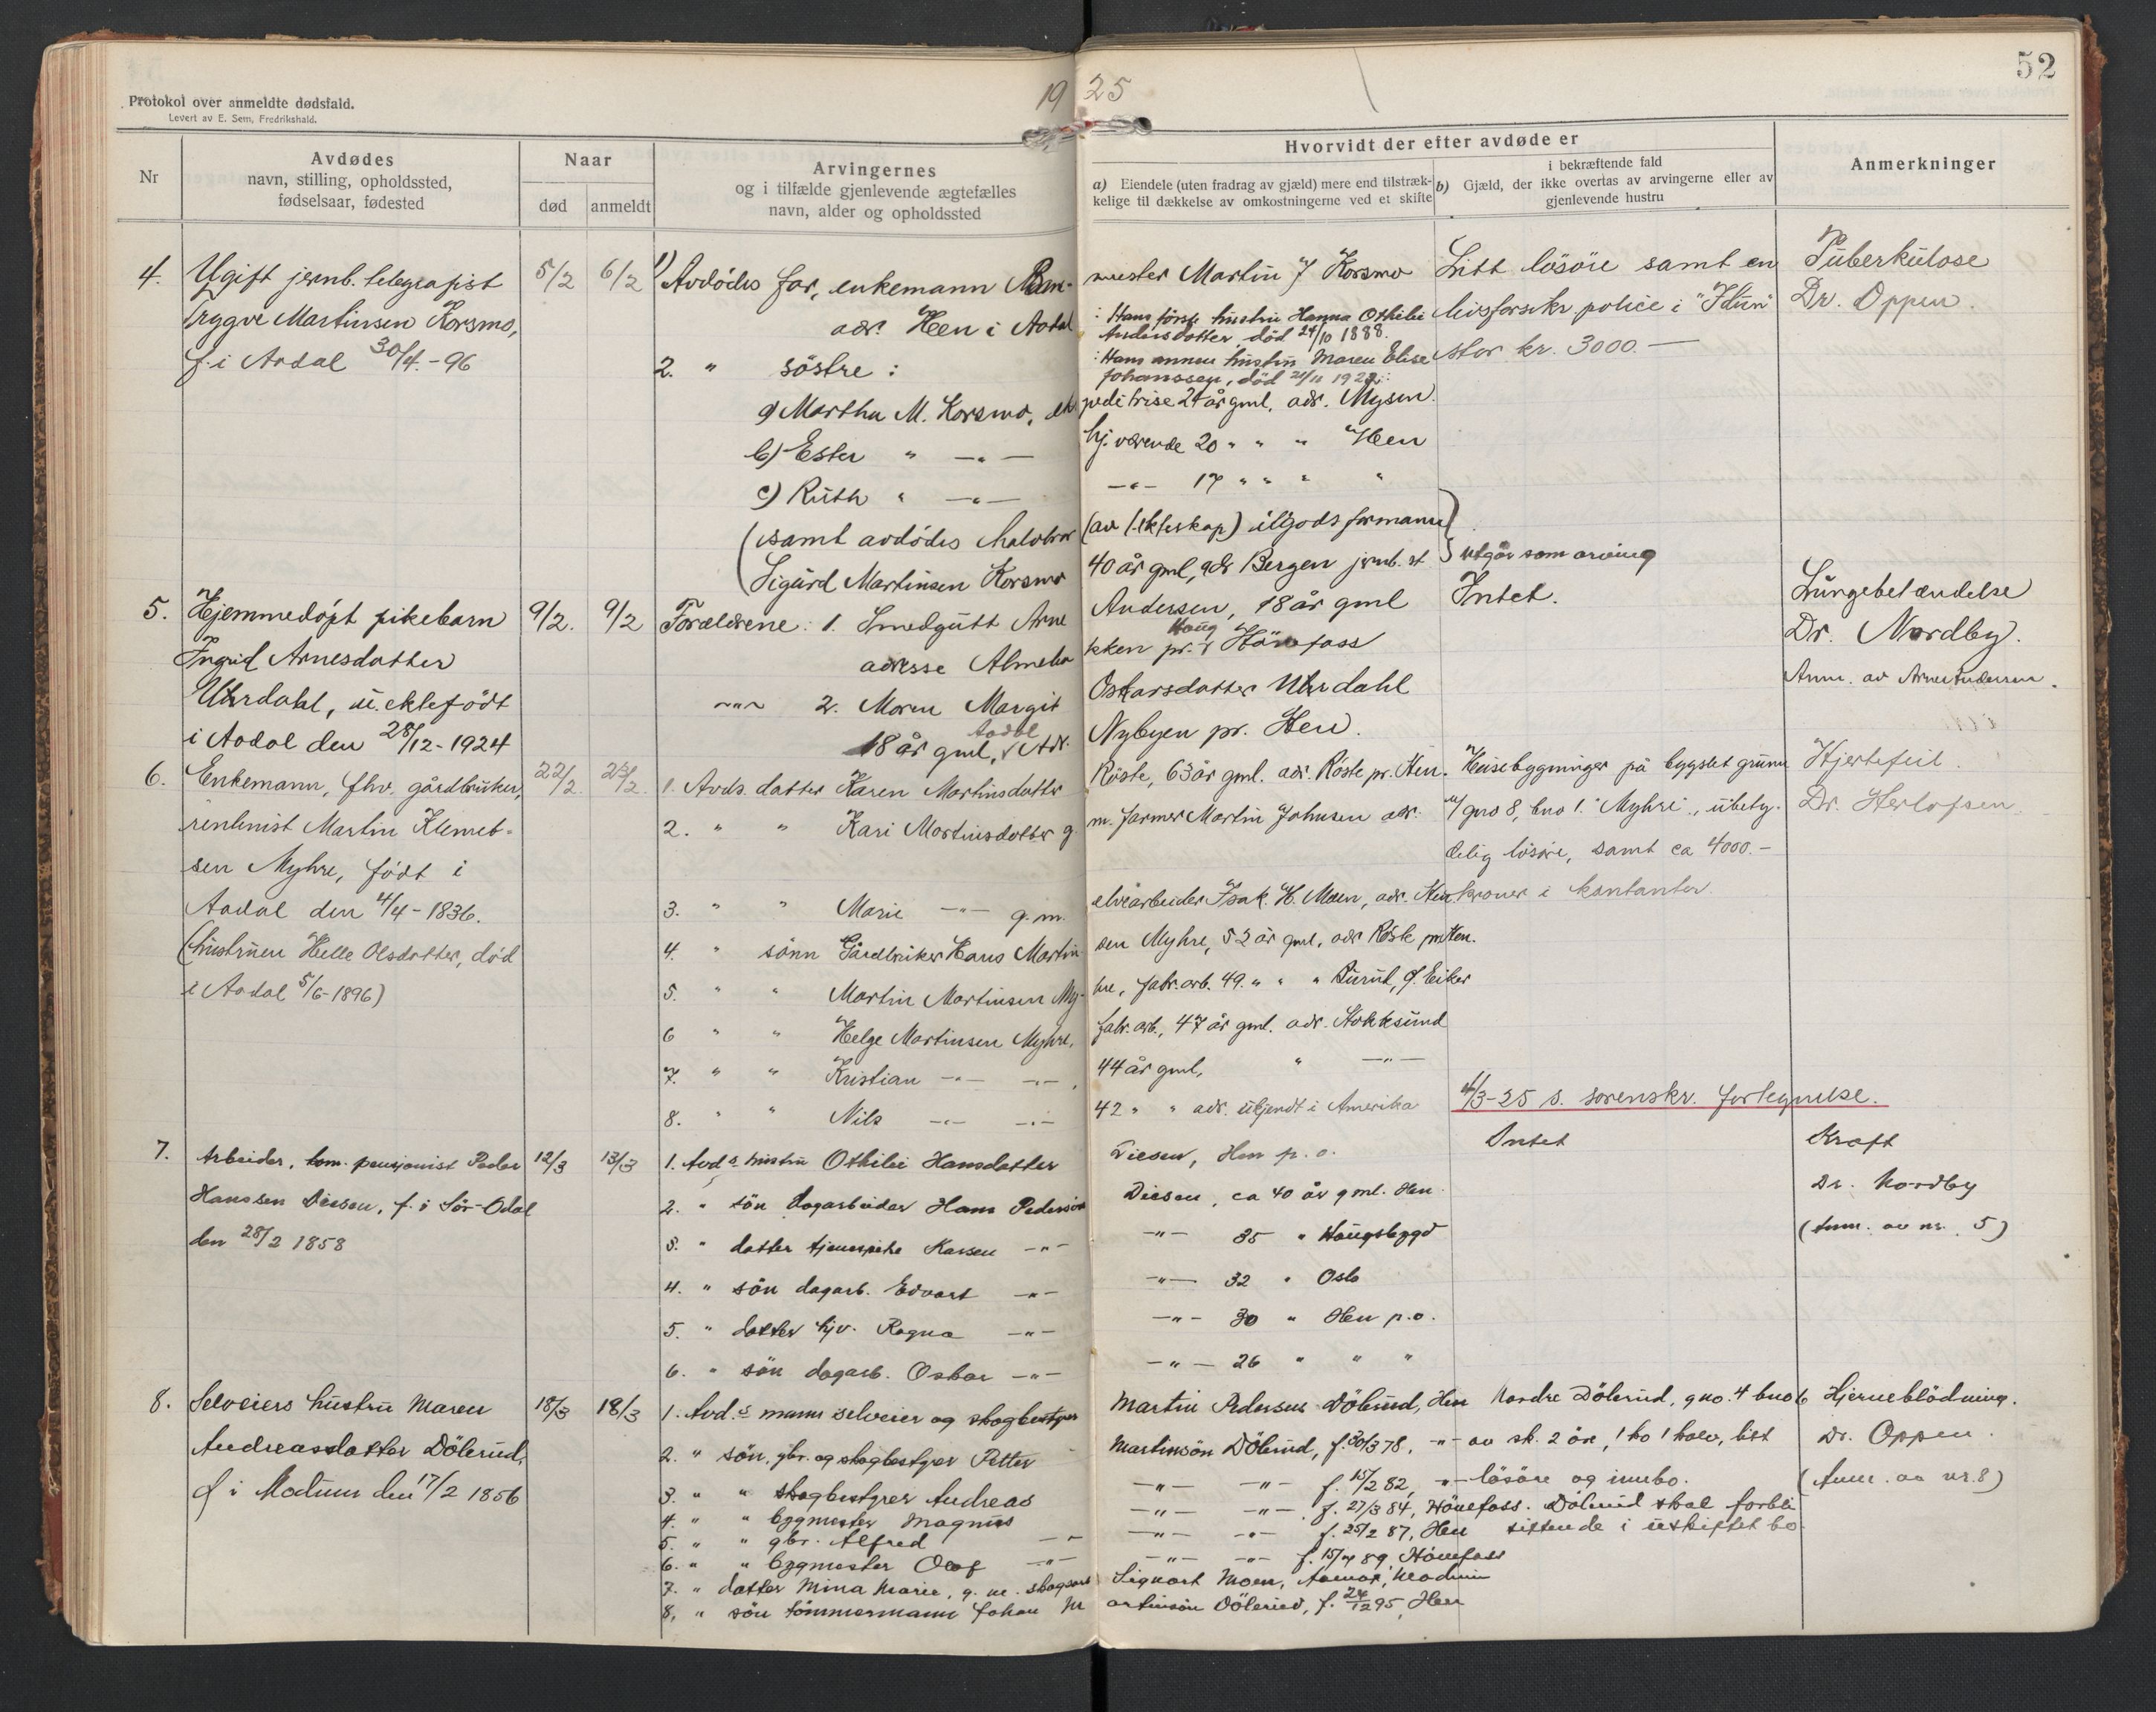 52
19 25
Protokol over anmeldte dødsfald.
Levert av E. Sem, Fredrikshald.
Nr
Avdødes
navn, stilling, opholdssted,
fødselsaar, fødested
Naar
død
anmeldt
Arvingernes
og i tilfælde gjenlevende ægtefælles
navn, alder og opholdssted
Hvorvidt der efter avdøde er
a) Eiendele (uten fradrag av gjæld) mere end tilstræk-
kelige til dækkelse av omkostningerne ved et skifte
i bekræftende fald
b) Gjæld, der ikke overtas av arvingerne eller av
gjenlevende hustru
Anmerkninger
4.
Ugift jernb. telegrafist
Trygve Martinsen Korsmo,
f. i Aadal 30/4.-96
5/2
6/2
1) Avdødes far, enkemann Ban-
mester Martin J Korsmo
adr. Hen i Aadal
: Hans første hustru Hanna Othilie
Andersdatter, död 24/10 1888.
2. " söstre :
: Hans annen hustru Maren Elise
Johanssen, död 21/11 192
a) Martha M. Korsmo, eks
peditrise 24 år gml, adr. Mysen.
b) Ester " —"—
hj. værende 20 " " " Hen
c) Ruth " —"—
—"— 17 " " " "
(samt avdødes halvbror
(av 1. ekteskap) ilgods formann
Sigurd Martinsen Korsmo
40 år gml, adr Bergen jernb. st
} utgår som arving
Litt lösöre samt en
livsforsikr. police i "Idun"
stor kr. 3000.—
Tuberkulose
Dr. Oppen.
5.
Hjemmedöpt pikebarn
Ingrid Arnesdatter
Uhrdahl, u.ektefödt
i Aadal den 28/12-1924
9/2.
9/2
Forældrene: 1. Smedgutt Arne
Andersen, 18 år gml
adresse Almeba
kken pr. Haug v Hönefoss
—"— 2. Moren Margit
Oskarsdatter Uhrdahl
18 år gml, v Adr. Aadal
Nybyen pr. Hen.
Intet.
Lungebetændelse
Dr. Nordby.
Anm. av Arne Andersen.
6.
Enkemann, fhv. gårdbruker,
rentenist Martin Klemet-
sen Myhre, født i
Aadal den 4/4-1836.
(hustruen Helle Olsdatter, död
i Aadal 5/6-1896)
22/2
23/2.
1. Avds. datter Karen Martinsdatter
Röste, 63 år gml. adr. Röste pr. Hen.
2. " " Kari Martinsdatter g.
m. farmer Martin Johnsen adr.
3. " " Marie —"— g.m.
elvearbeider Isak H. Moen, adr. Hen
4. " sönn Gårdbruker Hans Martin-
sen Myhre, 52 år gml, adr Röste pr Hen.
5. " " Martin Martinsen My-
hre, fabr.arb. 49. " " " Durud, Ø. Eiker
6 " " Helge Martinsen Myhre,
fabr. arb., 47 år gml. adr. Hokksund
7. " " Kristian —"— —"—,
44 år gml, " —"—
8. " " Nils —"— —"—
42 " " adr. ukjendt i Amerika
Husebygninger på bygslet grunn
u/ gno 8, bno 1. "Myhre", ubety-
delig lösöre, samt ca 4000.-
kroner i kontanter.
4/3-25 s. sorenskr. fortegnelse.
Hjertefeil.
Dr. Herlofsen
7.
Arbeider, kom. pensjonist Peder
Hanssen Diesen, f. i Sör-Odal
den 28/2 1858
12/3
13/3
1. Avd.s hustru Othilie Hansdatter
Diesen, Hen p.o.
2. " sön dagarbeider Hans Pedersön
Diesen, ca 40 år gml. Hen
3. " datter tjenespike Karen —"—
—"— 35 " Haugsbygd
4. " sön dagarb. Edvart —"—
—"— 32 " Oslo
5. " datter hjv. Ragna —"—
—"— 30 " Hen p.o.
6. " sön dagarb. Oskar —"—
—"— 26 " " "
Intet
Kræft
Dr. Nordby
(Anm. av nr. 5)
8.
Selveiers hustru Maren
Andreasdatter Dölerud,
f i Modum den 17/2 1856
18/3
18/3
1. Avd.s mann selveier og skogbestyrer
Martin Pedersen Dölerud, Hen
2. " sön, gbr. og skogbestyrer Petter
Martinsön Dölerud, f. 30/3 78, "
3. " " skogbestyrer Andreas
—"— —"— f. 15/2 82, "
4. " " bygmester Magnus
—"— —"— f. 27/3 84, Hönefoss.
5. " " gbr. Alfred —"—
—"— —"— f. 25/2 87, Hen
6. " " bygmester Olaf —"—
—"— —"— f. 15/4 89, Hönefoss
7. " datter Mina Marie, g. m. skogsarb
Signart Moen, Aamot, Modum
8. " sön tömmermann Johan M
artinsön Dölerud, f. 24/12 95, Hen
Nordre Dölerud, gno. 4 bno 6
av sk. 2 öre, 1 ko 1 kalv, litt
lösöre og innbo.
Dölerud skal forbli
sittende i uskiftet bo.
Hjerneblödning.
Dr. Oppen.
(Anm. av nr. 8)